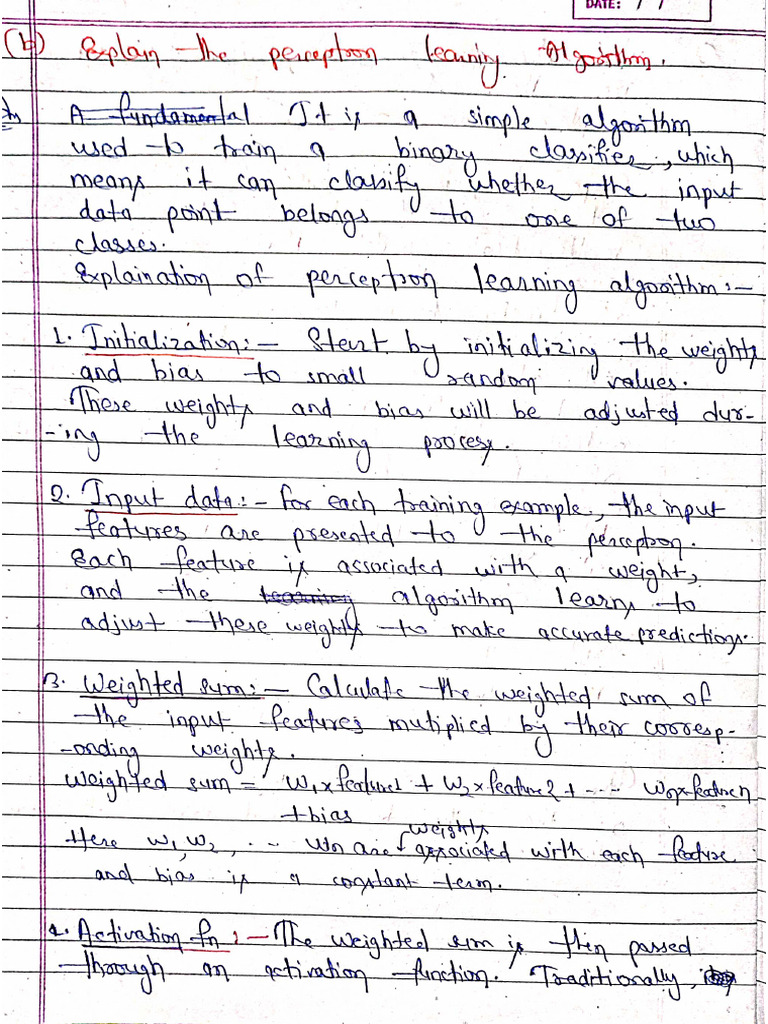 DATE: / /
(b) Explain the perceptron learning Algorithm.
A fundamental It is a simple algorithm
used to train a binary classifier, which
means it can classify whether the input
data point belongs to one of two
classes.
Explaination of perceptron learning algorithm:-
1. Initialization:- Start by initializing the weights
and bias to small random values.
These weights and bias will be adjusted dur-
-ing the learning process.
2. Input data:- for each training example, the input
features are presented to the perceptron.
Each feature is associated with a weight,
and the learning algorithm learns to
adjust these weights to make accurate predictions.
3. Weighted sum:- Calculate the weighted sum of
the input features mutiplied by their corresp-
-onding weights.
weighted sum = w1 x feature1 + w2 x feature2 + ... wn x feature n
+ bias
Here w1, w2, ... wn are weights associated with each feature
and bias is a constant term.
4. Activation fn:- The weighted sum is then passed
through an activation function. Traditionally,